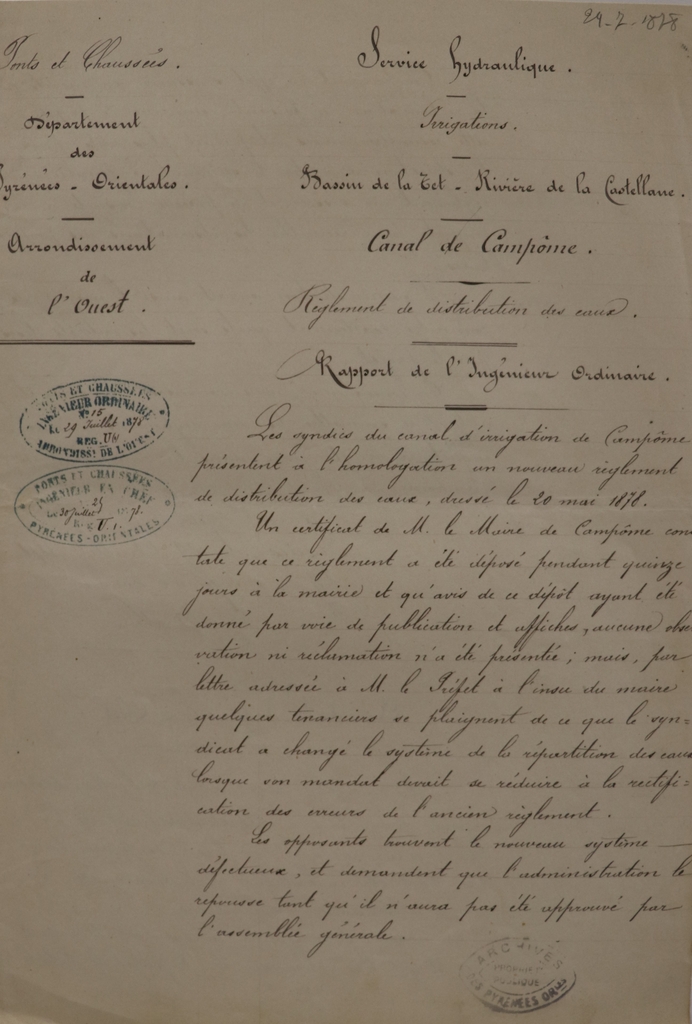 29-7-1878
Ponts et Chaussées.
Département
des
Pyrénées-Orientales.
Arrondissement
de
l'Ouest.
Service hydraulique.
Irrigations.
Bassin de la Tet - Rivière de la Castellane.
Canal de Campôme.
Règlement de distribution des eaux.
Rapport de l'Ingénieur Ordinaire.
PONTS ET CHAUSSÉES
INGÉNIEUR ORDINAIRE
N° 15
Le 29 Juillet 1878
REG. VII
ARRONDISST DE L'OUEST
PONTS ET CHAUSSÉES
INGÉNIEUR EN CHEF
Le 30 juillet 1878.
PYRÉNÉES-ORIENTALES
Les syndics du canal d'irrigation de Campôme
présentent à l'homologation un nouveau règlement
de distribution des eaux, dressé le 20 mai 1878.
Un certificat de M. le Maire de Campôme cons
tate que ce règlement a été déposé pendant quinze
jours à la mairie et qu'avis de ce dépôt ayant été
donné par voie de publication et affiches, aucune obser
vation ni réclamation n'a été présentée; mais, par
lettre adressée à M. le Préfet à l'insu du maire
quelques tenanciers se plaignent de ce que le syn=
dicat a changé le système de la répartition des eaux
lorsque son mandat devait se réduire à la rectifi=
cation des erreurs de l'ancien règlement.
Les opposants trouvent le nouveau système
défectueux, et demandent que l'administration le
repousse tant qu'il n'aura pas été approuvé par
l'assemblée générale.
ARCHIVES
PUBLIQUE
DES PYRÉNÉES ORLES